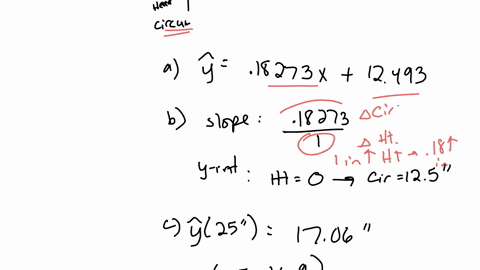 Circum
a) ŷ = .18273x + 12.493
b) slope: .18273 / 1 Δ Cir
Δ Ht.
1 in ↑ Ht → .18 ↑
y-int: Ht = 0 → Cir = 12.5"
c) ŷ(25") = 17.06"